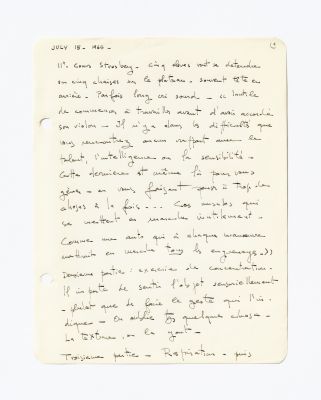 JULY 18 - 1960 -
11° Cours Strasberg - Cinq élèves vont se détendre
sur cinq chaises sur le plateau. souvent tête en
arrière - Parfois long cri sourd -
de commencer à travailler avant d'avoir accordé
son violon - Il n'y a dans les difficultés que
vous rencontrez aucun rapport avec le
talent, l'intelligence ou la sensibilité -
Cette dernière est même là pour vous
gêner - en vous faisant penser à trop de
choses à la fois ... Ces muscles qui
se mettent en marche inutilement -
Comme une auto qui à chaque manœuvre
mettrait en marche tous les engrenages - »
Deuxième partie: exercice de concentration.
Il importe de sentir l'objet sensoriellement
- plutôt que de faire le geste qui l'in-
dique - On oublie quelque chose -
La texture, ou le goût -
Troisième partie - Respiration - puis